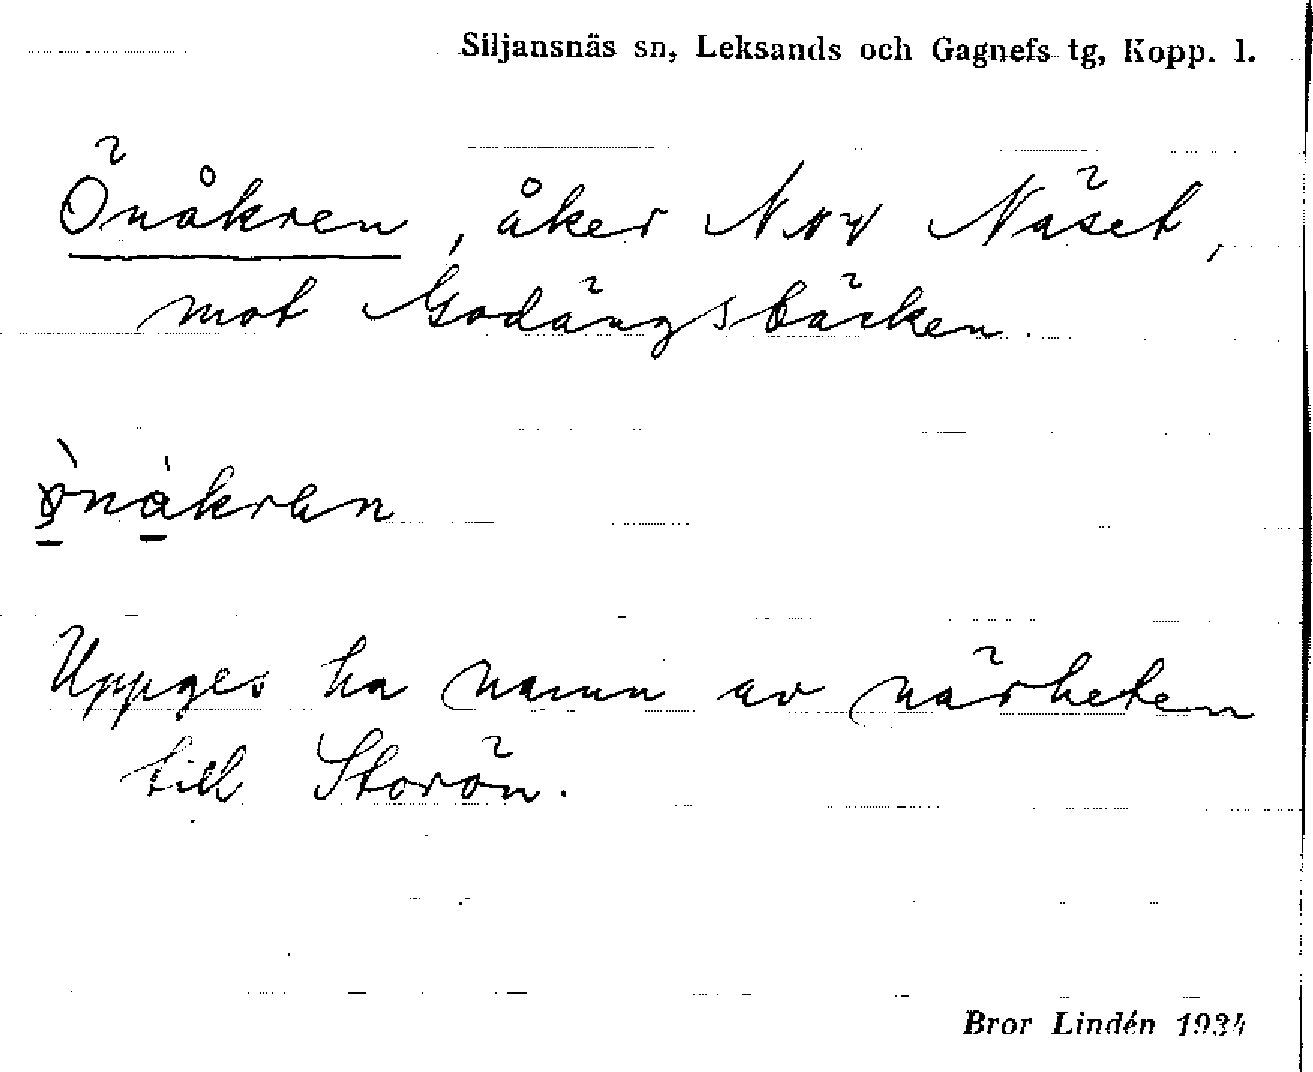 Siljansnäs sn, Leksands och Gagnefs tg, Kopp. l.
Önåkren, åker NNV Näset,
mot Godängsbäcken.
Uppges ha namn av närheten
till Storön.
Bror Lindén 1934